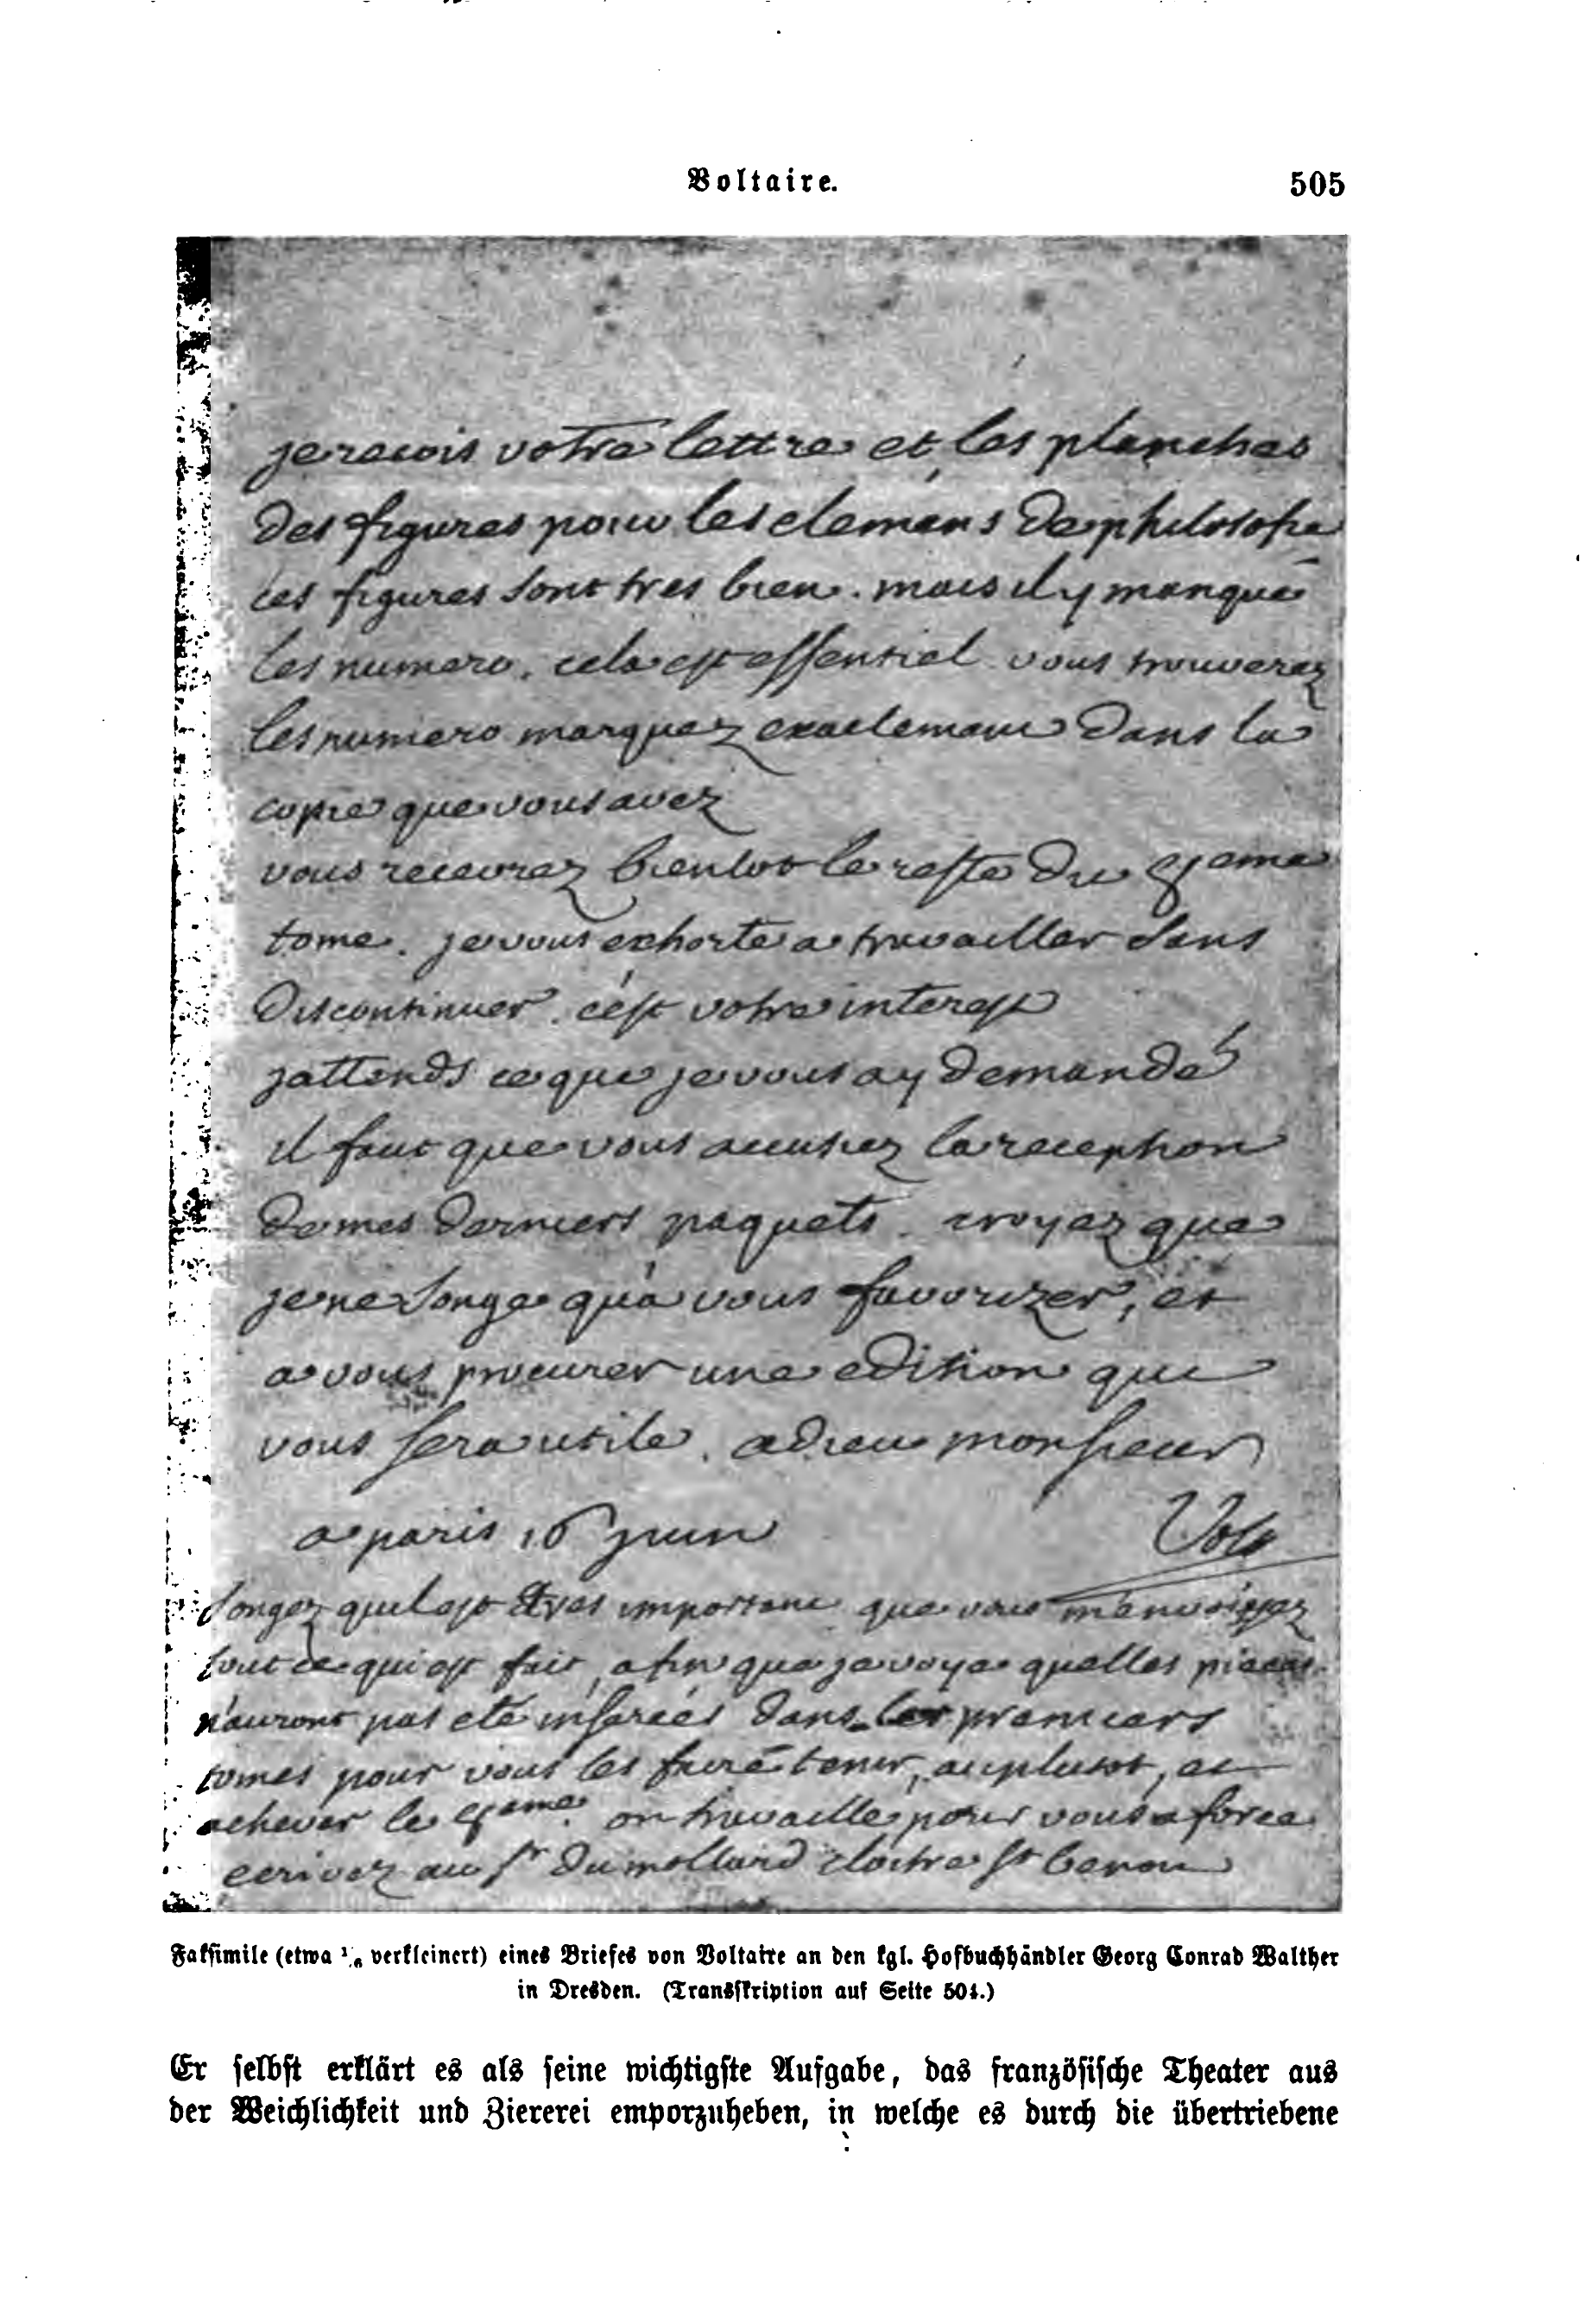 Voltaire.
505
je recois votre lettre et les planches
des figures pour les elemens de philosofie
les figures sont tres bien. mais il y manque
les numero. cela est essentiel vous trouverez
les numero marquez exactement dans la
copie que vous avez
vous recevrez bientot le reste du 6eme
tome. je vous exhorte a travailler sans
discontinuer. c'est votre interest
jattends ce que je vous ay demandé
il faut que vous accusiez la reception
de mes derniers paquets. croyez que
je ne songe qu'a vous favorizer, et
a vous procurer une edition qui
vous sera utile. adieu monsieur
a paris 16 juin
Volt
songez quil est tres important que vous m'envoiyez
tout ce qui est fait, afin que je voye quelles pieces
n'auront pas eté inserées dans les premiers
tomes pour vous les faire tenir, au plutot, et
achever le 6eme. on travaille pour vous a force
ecrivez au sr du mollard cloitre st benoit
Faksimile (etwa 1/6 verkleinert) eines Briefes von Voltaire an den kgl. Hofbuchhändler Georg Conrad Walther
in Dresden. (Transskription auf Seite 504.)
Er selbst erklärt es als seine wichtigste Aufgabe, das französische Theater aus
der Weichlichkeit und Ziererei emporzuheben, in welche es durch die übertriebene